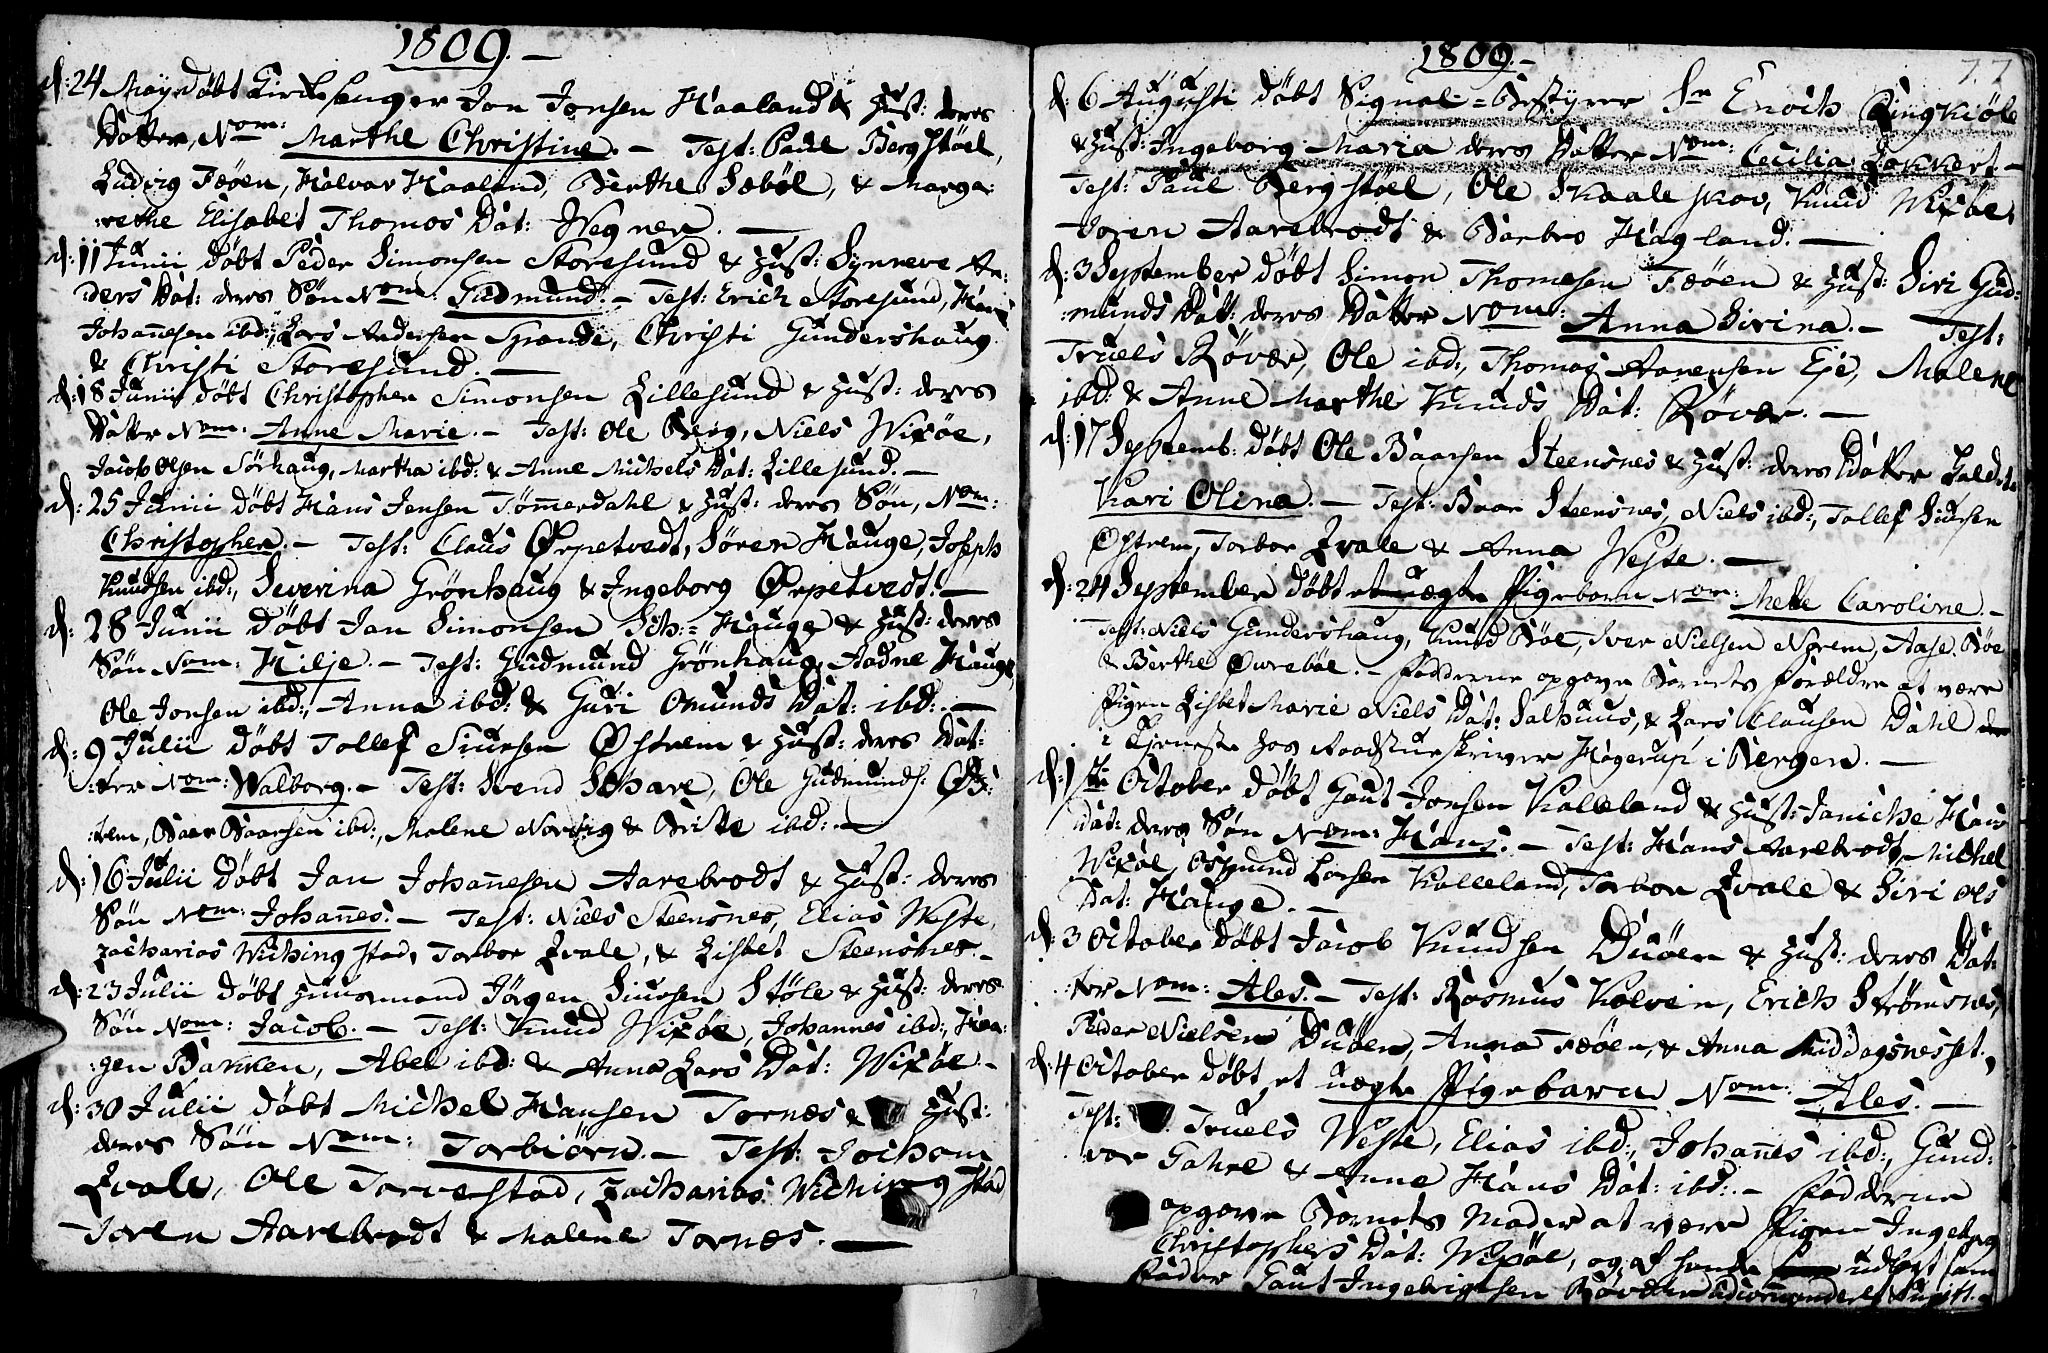 1809.-
d: 24 Maÿ döbt Kirkesanger Jon Jonsen Haaland & Hust: deres
Datter, Nom: Marthe Christine. - Test: Paul Bergstöel,
Ludvig Feöen, Halvor Haaland, Berthe Seböe, & Marga-
:rethe Elisabet Thomas Dat: Wegner. —
d: 11 Junii döbt Peder Simonsen Storesund & Hust: Synneve An-
ders Dat: deres Sön Nom: Gudmund. - Test: Erich Storesund, Hans
Johañesen ibd:, Lars Andersen Spande, Christi Gundershaug
& Christi Storesund. —
d: 18 Junii döbt Christopher Simonsen Lillesund & Hust: deres
Datter Nom: Anne Marie. - Test: Ole Berg, Niels Wixöe,
Jacob Olsen Sörhaug, Martha ibd: & Anne Michels Dat: Lillesund. —
d: 25 Junii döbt Hans Jensen Töm̃erdahl & Hust: deres Sön, Nom:
Christopher. - Test: Claus Ørpetvedt, Sören Hauge, Joseph
Knudsen ibd:, Severina Grönhaug & Ingeborg Ørpetvedt. —
d: 28 Junii döbt Jan Simonsen Sch:= Hauge & Hust: deres
Sön Nom: Hilje. - Test: Gudmund Grönhaug, Aadne Hauge,
Ole Jonsen ibd:, Anna ibd: & Guri Omunds Dat: ibd:. —
d: 9 Julii döbt Tollef Siursen Østrem & Hust: deres Dat-
:ter Nom: Walborg. - Test: Svend Schare, Ole Gudmunds: Øst-
:rem, Baar Baarsen ibd:, Malene Norvig & Brite ibd: —
d: 16 Julii döbt Jan Johañesen Aarebrodt & Hust: deres
Sön Nom: Johañes. - Test: Niels Steensnes, Elias Weste,
Zacharias Wichingstad, Torbor Qvale, & Lisbet Steensnes. -
d: 23 Julii döbt Huusmand Jörgen Siursen Stöle & Hust: deres
Sön Nom: Jacob. - Test: Knud Wixöe, Johannes ibd:, Haa-
:gen Bakken, Abel ibd: & Anna Lars Dat: Wixöe -
d: 30 Julii döbt Michel Hansen Tornes & Hust:
deres Sön Nom: Torbiörn. - Test: Jochom
Qvale, Ole Torvestad, Zacharias Wichingstad
Joren Aarebrodt & Malene Tornes. —
1809.-
77
d: 6 Augusti döbt Signal=Bestyrer Sr Enoch Ringkiöb
& Hust: Ingeborg Maria deres Datter Nom: Cecilia Lokkert -
Test: Paul Bergstöel, Ole Skaaleskov, Knud Wixöe,
Joren Aarebrodt & Barbro Hagland. —
d: 3 September döbt Simon Thomesen Feöen & Hust: Siri Gud-
:munds Dat: deres Datter Nom: Anna Sirina. - Test:
Truels Röver, Ole ibd:, Thomas Aanensen Eje, Malene
ibd: & Anne Marthe Knuds Dat: Röver. —
d: 17 Septemb: döbt Ole Baarsen Steensnes & Hust: deres Datter kaldet
Kari Olina. - Test: Baar Steensnes, Niels ibd:, Tollef Siursen
Østrem, Torbor Qvale & Anna Weste. —
d: 24 September döbt et uægte Pigebarn Nom: Mette Caroline. -
Test: Niels Gundershaug, Knud Böe, Iver Nielsen Norem, Aase Böe
& Berthe Øvreböe. - Fadderne opgave Barnets Forældre at være
Pigen Lisbet Marie Niels Dat: Salhuus, & Lars Clausen Dahl
i Tjeneste hos Raadstueskriver Hagerup i Bergen. —
d: 1ste October döbt Gaut Jonsen Kalleland & Hust: Janiche Hans
Dat: deres Sön Nom: Hans. - Test: Hans Aarebrodt, Michel
Wixöe, Osmund Larsen Kalleland, Torbor Qvale & Siri Ols
Dat: Hauge. —
d: 3 October döbt Jacob Knudsen Duöen & Hust: deres Dat-
:ter Nom: Ales. - Test: Rasmus Kolvein, Erich Strömsnes,
Peder Nielsen Duöen, Anna Feöen, & Anna Middagsneset.
d: 4 October döbt et uægte Pigebarn Nom: Ales. —
Test: Truels Weste, Elias ibd:, Johañes ibd:, Gund-
:vor Gahre & Anne Hans Dat: ibd:. - Fadderne
opgave Barnets Moder at være Pigen Ingeborg
Christophers Dat: Wixöe, og af hende udlagt som
Fader Gaut Ingebrigtsen Rövær